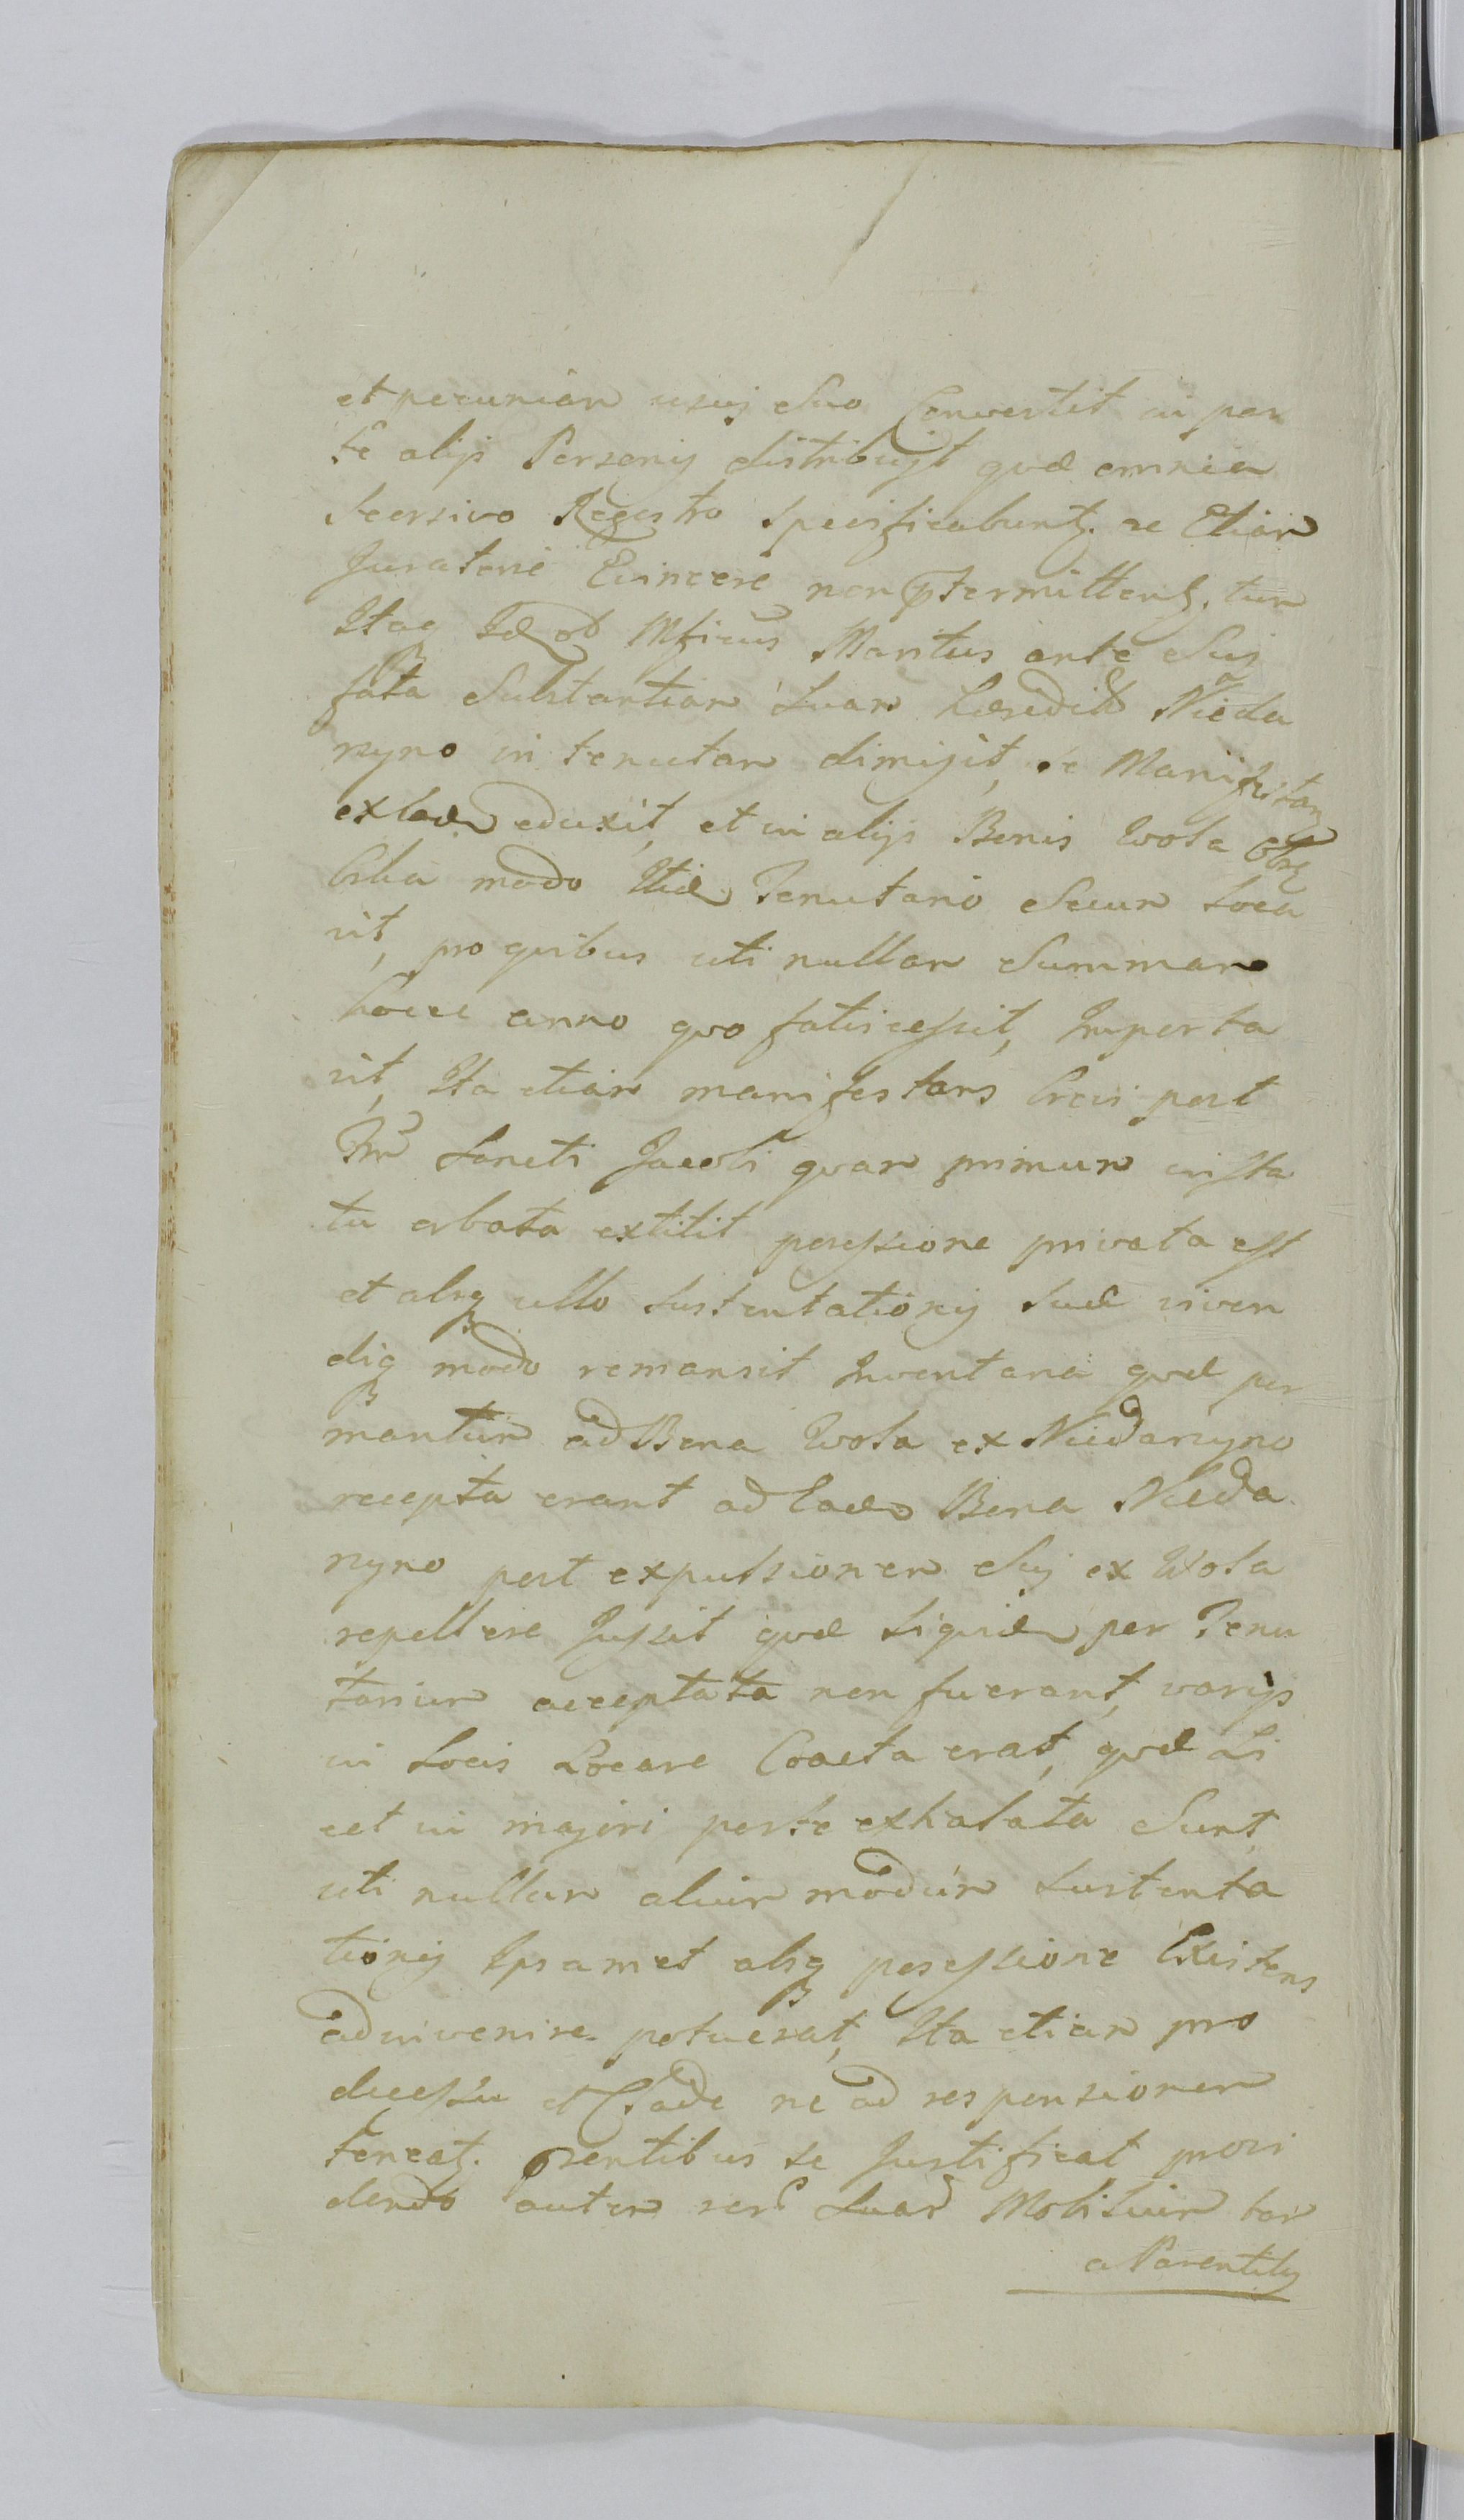 et pecuniam usuj Suo Convertit in par
te alijs Personis distribujt quæ omnia
Seorsivo Regestro specificabunt. ac Etiam
Juratorie Evincere non prtermittent. tum
Itaq Idem Mficus Maritus ante Suj
fata Substantiam Suam hæredit Nieda
nyno in tenutam dimisit, se Manifestan
exinde eduxit, et in alijs Bonis Wola
modo Tenutario Secum loca
vit, pro quibus uti nullam Summam
hocce anno quo fatis cessit, Importa
vit, Ita etiam manifestans brevi post
Sancti Jacobi quam primum in sta
tu orbata extitit possessione privata est
et absq ullo Sustentationis Suæ viven
diq modo remansit Inventaria quæ per
maritum ad Bona Wola ex Niedanyno
recepta erant ad Bona Nieda
nyno post expulsionem Suj ex Wola
repellere Jussit quæ siquidem per Tenu
tarium acceptata non fuerant, varijs
in Locis Locare Coacta erat, quæ Li
cet in majori parte exhalata Sunt,
uti nullum alium modum Sustenta
tionis Ipsamet absq possessione Existens
adinvenire potuerat, Ita etiam pro
decessu et Clade ne ad responsionem
teneat. prsentibus se Justificat provi
dendo autem rerum Suar Mobilium tam
a Parentibus